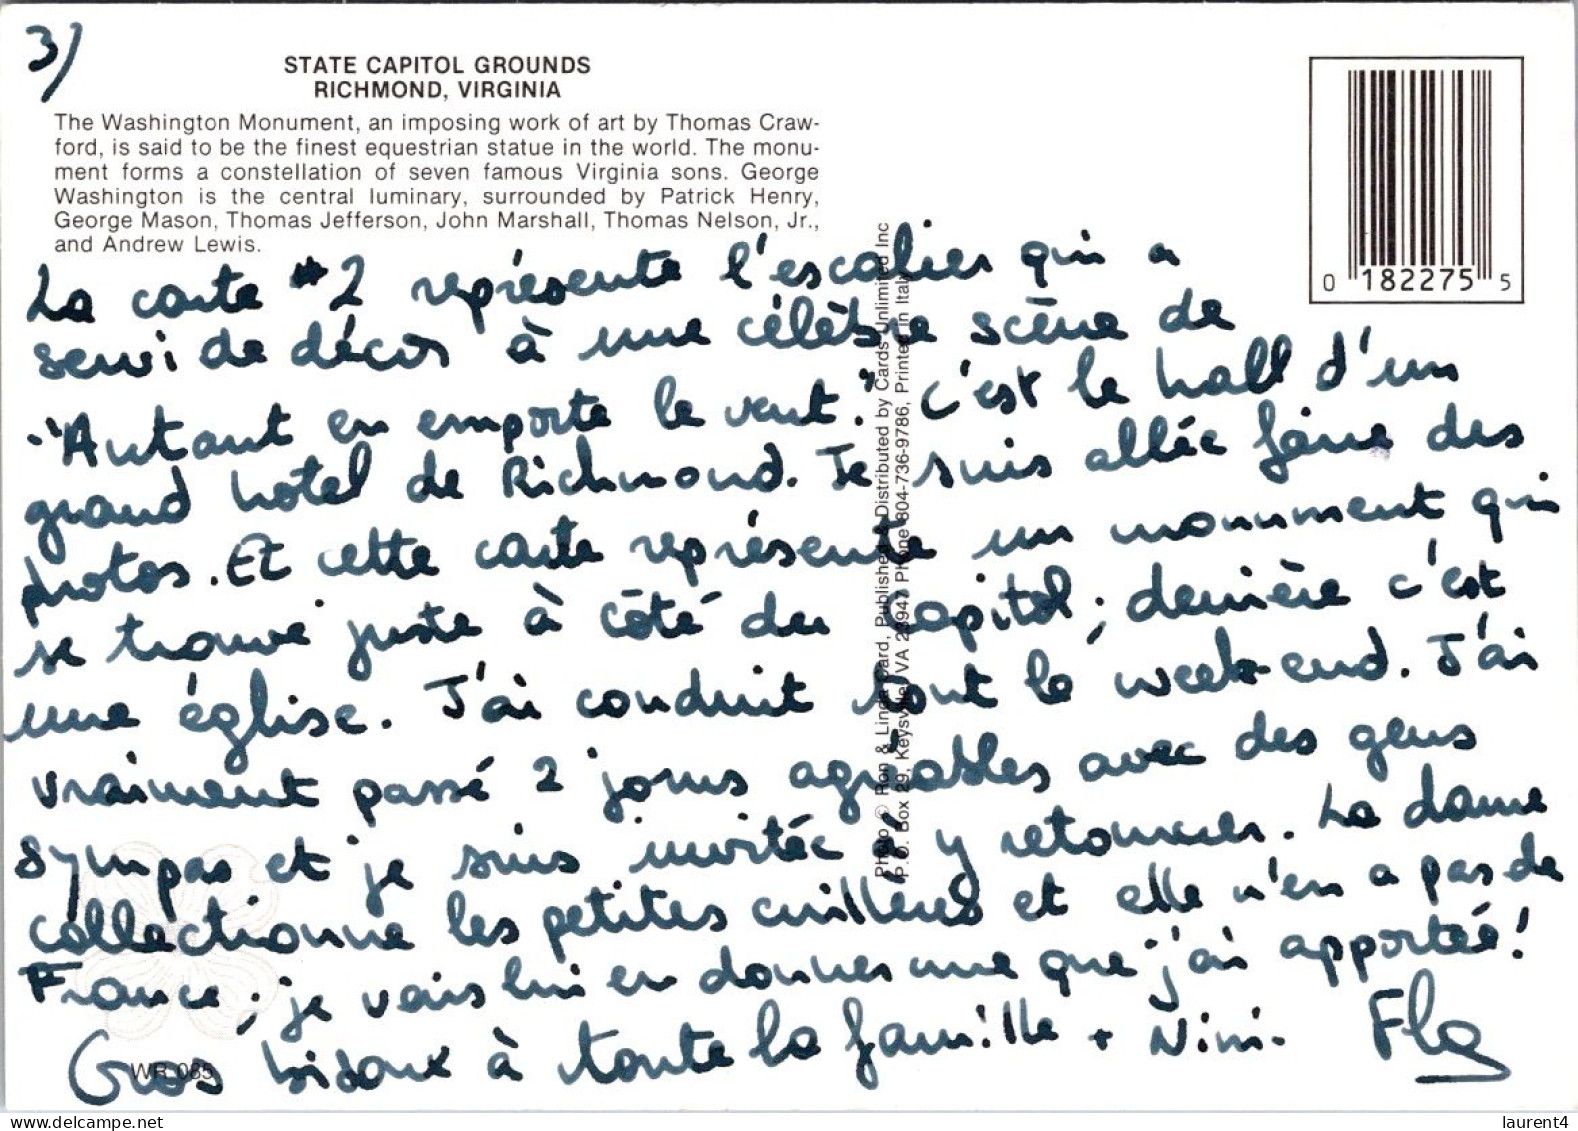 3)
STATE CAPITOL GROUNDS
RICHMOND, VIRGINIA
The Washington Monument, an imposing work of art by Thomas Craw-
ford, is said to be the finest equestrian statue in the world. The monu-
ment forms a constellation of seven famous Virginia sons. George
Washington is the central luminary, surrounded by Patrick Henry,
George Mason, Thomas Jefferson, John Marshall, Thomas Nelson, Jr.,
and Andrew Lewis.
0 182275 5
La carte #2 représente l'escalier qui a
servi de décor à une célèbre scène de
"Autant en emporte le vent." c'est le hall d'un
grand hotel de Richmond. Je suis allée faire des
photos. Et cette carte représente un monument qui
se trouve juste à côté du capitol; derrière c'est
une église. J'ai conduit tout le week-end. J'ai
vraiment passé 2 jours agréables avec des gens
sympas et je suis invitée à y retourner. La dame
collectionne les petites cuillères et elle n'en a pas de
France; je vais lui en donner une que j'ai apportée!
Gros bisoux à toute la famille + Nini. Flo
WR 085
Photo © Ron & Linda Card, Published & Distributed by Cards Unlimited Inc
P.O. Box 29, Keysville, VA 23947 Phone 804-736-9786, Printed in Italy
laurent4